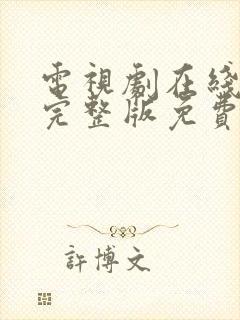 電視劇在綫
完整版免費
許博文